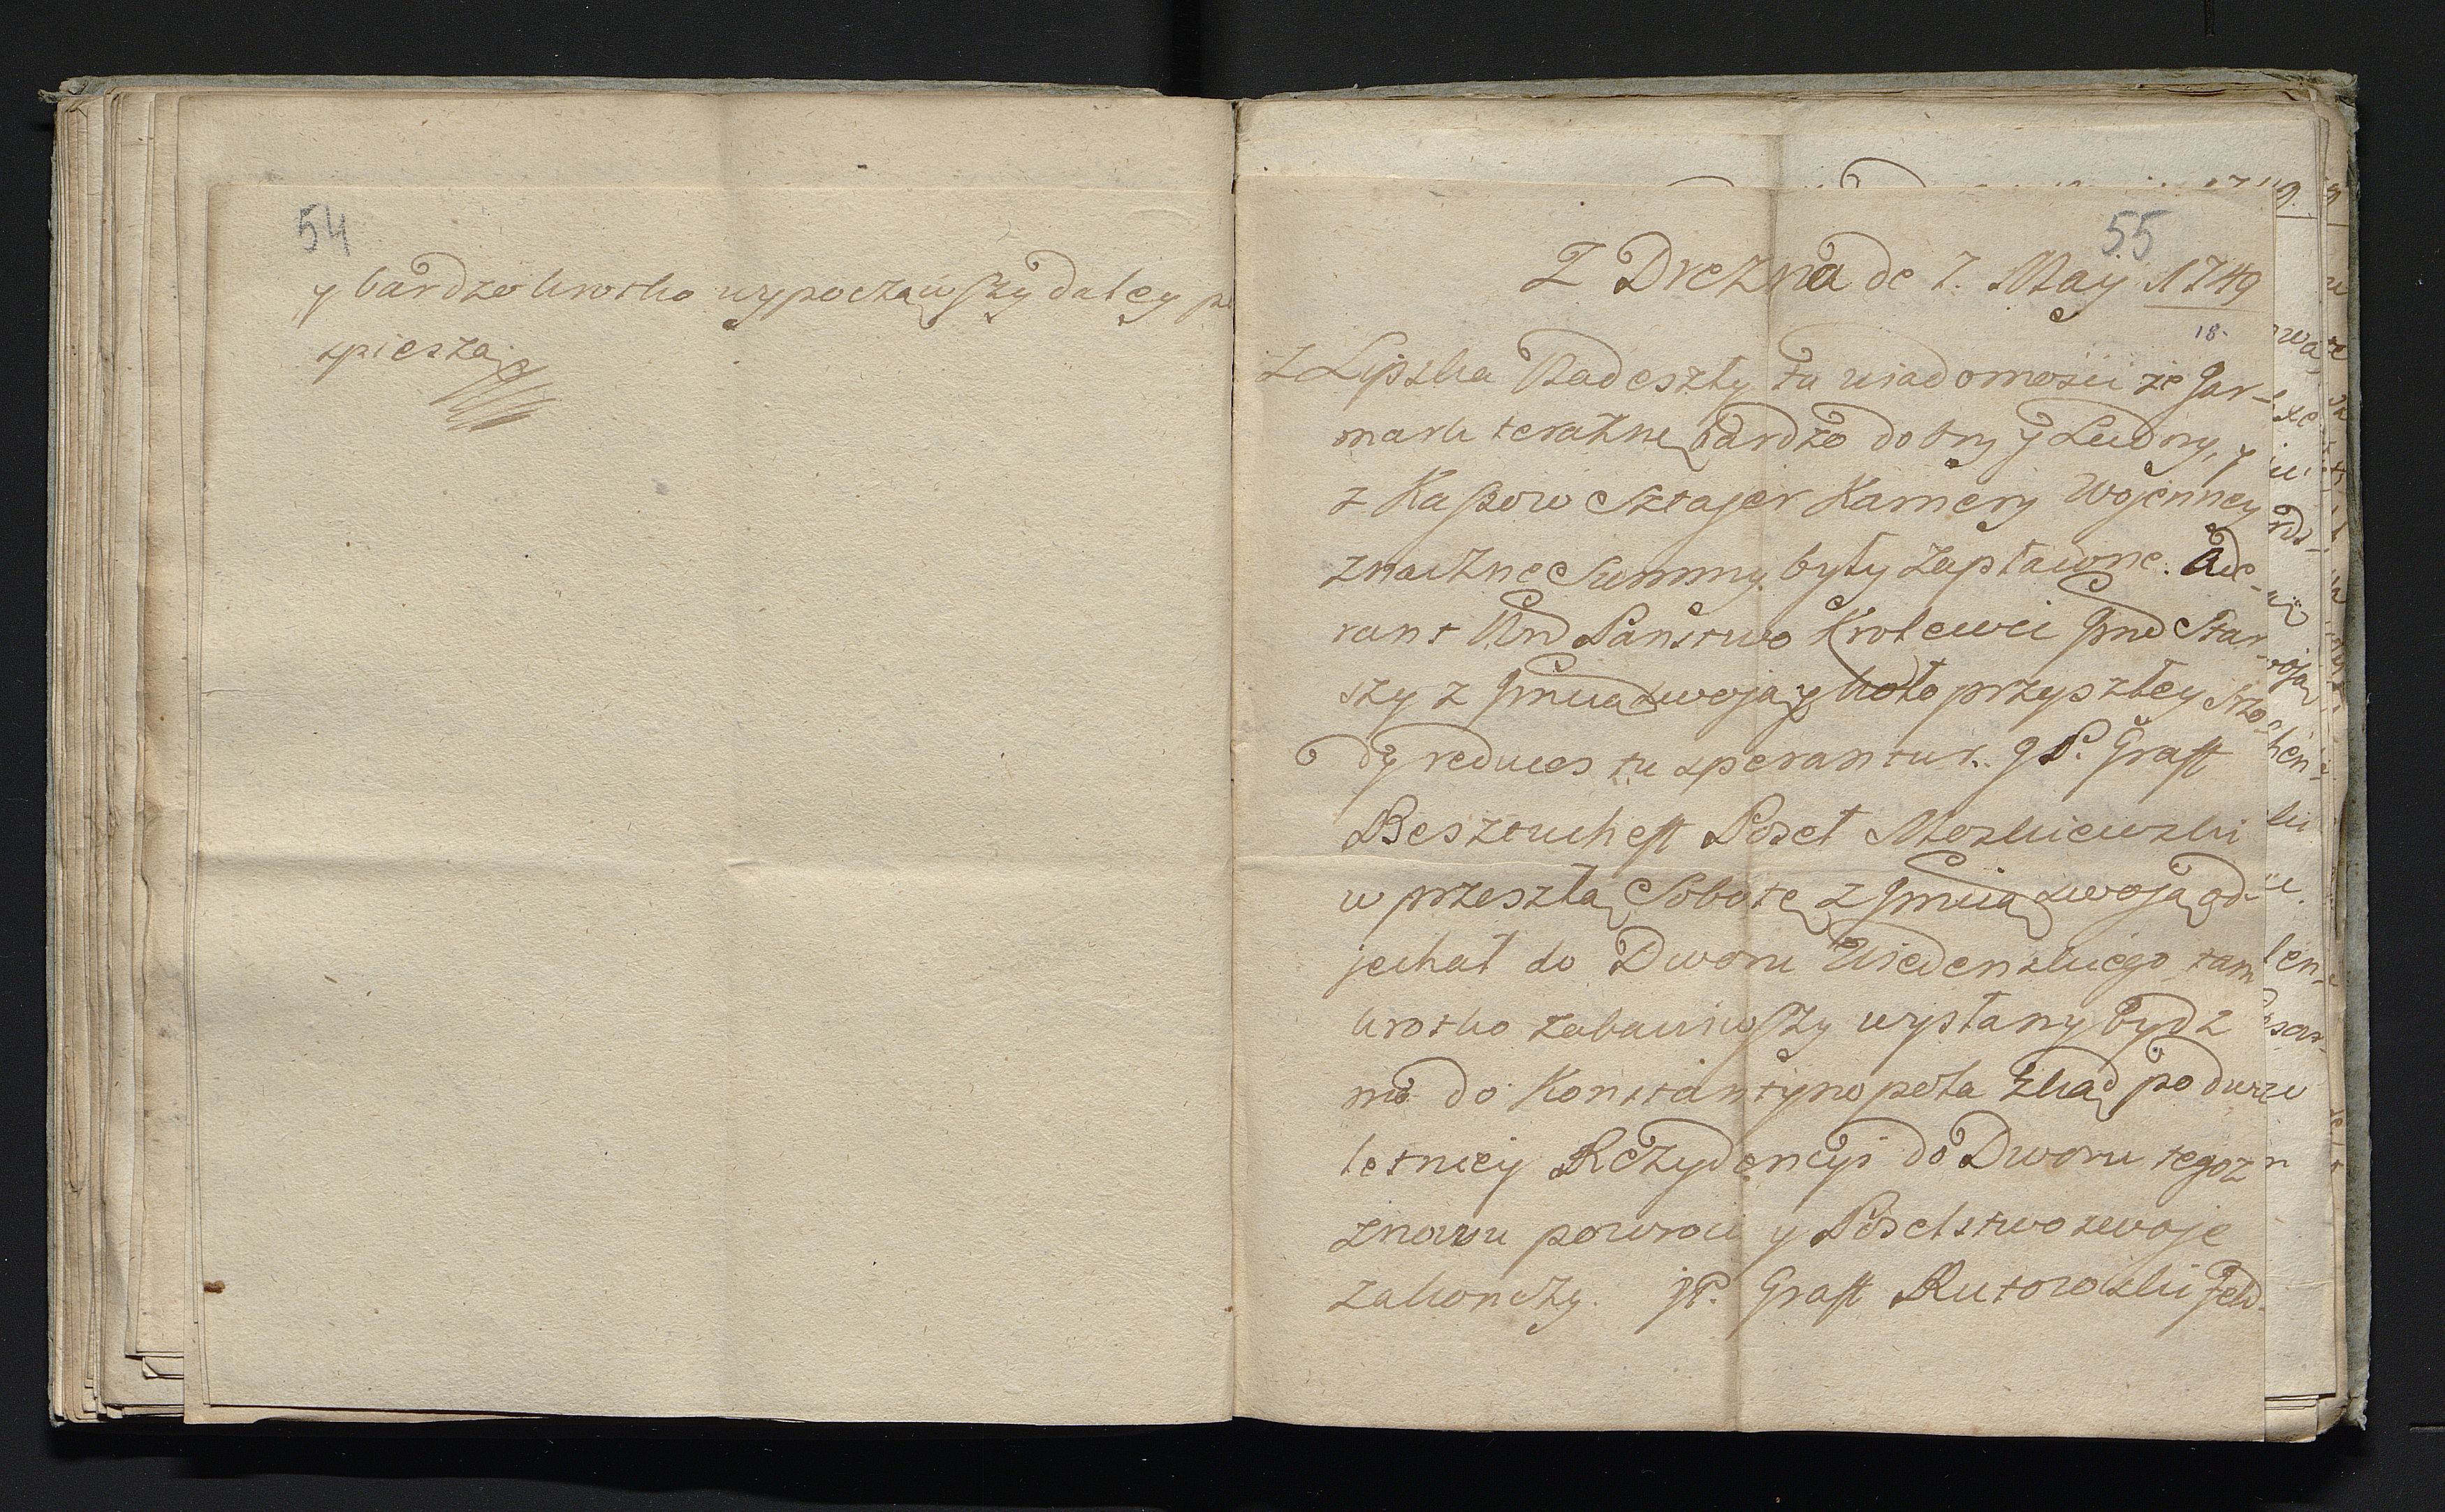 54
y bardzo krotko wypocząwszy daley po
spieszaią
55
Z Drezna de 7. May 1749
18.
Z Lipska Nadeszły tu wiadomości ze Jar-
mark terazny bardzo dobry y Ludny, y
z Kassow Sztajer Kamery Wojenney
znaczne Summy były zapłacone. Ade-
rant Nnd Państwo Krolewic Jmć Star-
szy z Jmcią swoją y koło przyszłey Srzo-
dy reduces tu sperantur. JP. Graff
Besztucheff Poseł Moskiewski
w przeszłą Sobotę z Jmcią swoją od-
jechał do Dworu Wiedenskiego tam
krotko zabawiwszy wysłany bydz
ma do Konstantynopola zkąd po dwu
letniey Rezydencyi do Dworu tegoz
znowu powroci y Poselstwo swoje
zakonczy. JP. Graff Rutowski Feld-